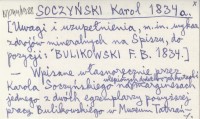 SOCZYŃSKI Karol 1834a.
[Uwagi i uzupełnienia, m.in. wykaz
zdrojów mineralnych na Spiszu, do
pozycji: "BULIKOWSKI F. B. 1834.]
— Wpisane własnoręcznie przez
Karola Soczyńskiego na marginesach
jednego z dwóch egzemplarzy powyższej
pracy Bulikowskiego w Muzeum Tatrzań.